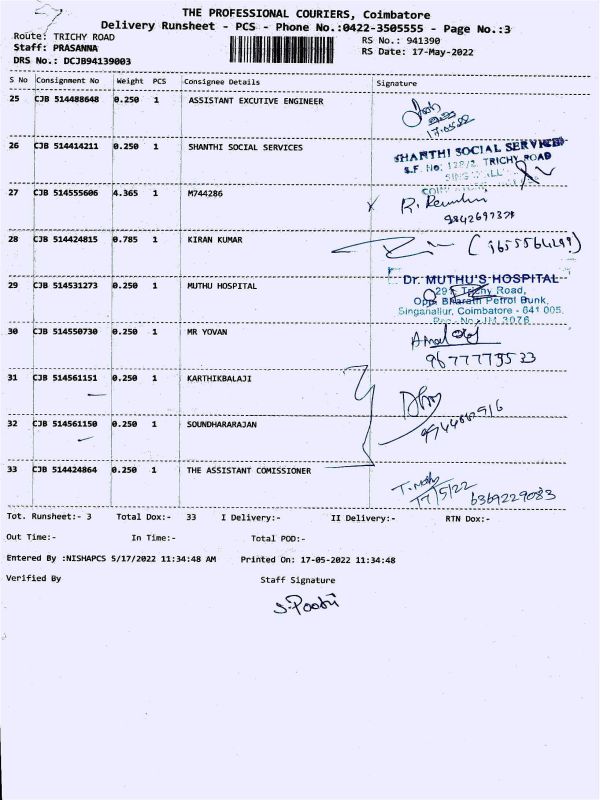 THE PROFESSIONAL COURIERS, Coimbatore
Delivery Runsheet - PCS - Phone No.:0422-3505555 - Page No.:3
Route: TRICHY ROAD RS No.: 941390
Staff: PRASANNA RS Date: 17-May-2022
DRS No.: DCJB94139003
S No Consignment No Weight PCS Consignee Details Signature
25 CJB 514488648 0.250 1 ASSISTANT EXCUTIVE ENGINEER
17.05.22
26 CJB 514414211 0.250 1 SHANTHI SOCIAL SERVICES
SHANTHI SOCIAL SERVICES
S.F. No: 128/2, TRICHY ROAD
27 CJB 514555606 4.365 1 M744286
R.
28 CJB 514424815 0.785 1 KIRAN KUMAR
29 CJB 514531273 0.250 1 MUTHU HOSPITAL
Dr. MUTHU'S HOSPITAL
Trichy Road,
Opp. Bharath Petrol Bunk,
Singanallur, Coimbatore - 641 005.
30 CJB 514550730 0.250 1 MR YOVAN
Amal
9677779533
31 CJB 514561151 0.250 1 KARTHIKBALAJI
32 CJB 514561150 0.250 1 SOUNDHARARAJAN
33 CJB 514424864 0.250 1 THE ASSISTANT COMISSIONER
17/5/22 6369229083
Tot. Runsheet:- 3 Total Dox:- 33 I Delivery:- II Delivery:- RTN Dox:-
Out Time:- In Time:- Total POD:-
Entered By :NISHAPCS 5/17/2022 11:34:48 AM Printed On: 17-05-2022 11:34:48
Verified By Staff Signature